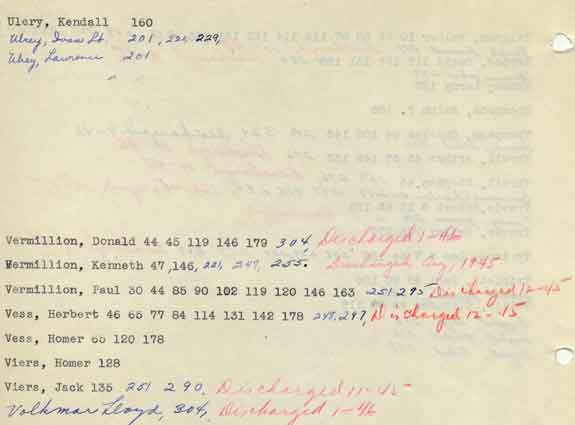 Ulery, Kendall 160
Ulrey, Ivan Lt. 201, 221, 229,
Ulrey, Lawrence 201
Vermillion, Donald 44 45 119 146 179 304, Discharged 1-46
Vermillion, Kenneth 47, 146, 221, 249, 255. Discharged Aug, 1945
Vermillion, Paul 30 44 85 90 102 119 120 146 163 251 295 Discharged 12-45
Vess, Herbert 46 65 77 84 114 131 142 178 248, 297, Discharged 12-15
Vess, Homer 65 120 178
Viers, Homer 128
Viers, Jack 135 251 290. Discharged 11-45
Volkmar Lloyd, 304, Discharged 1-46